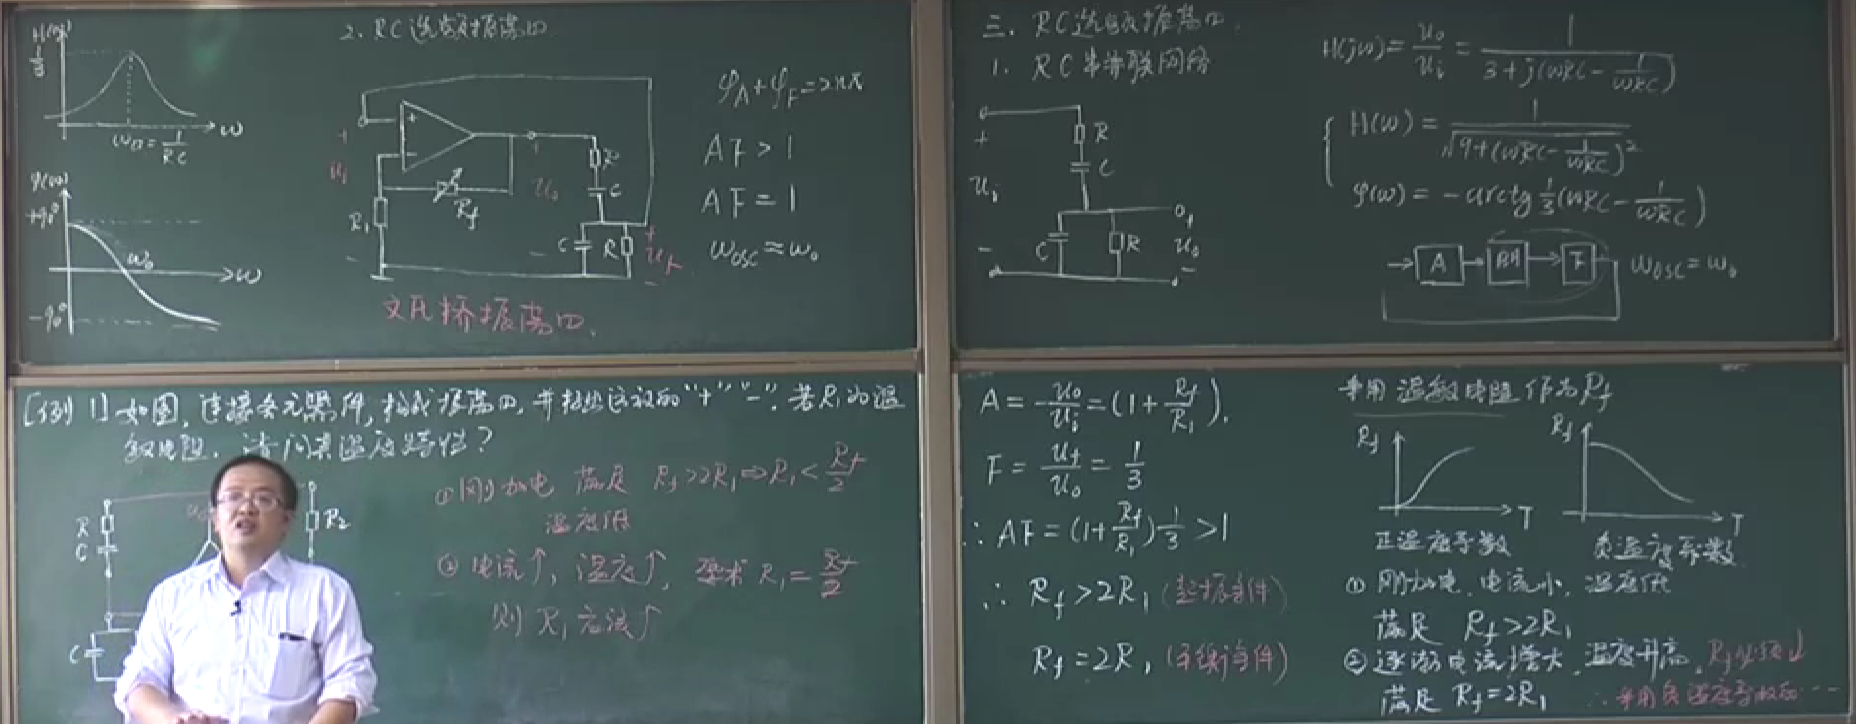 H(ω)
1/3
ω
ω₀=1/RC
φ(ω)
+90°
ω₀
ω
-90°
2、RC选频振荡口
+
-
+
uᵢ
R₁
Rf
+
u₀
-
-
R
C
C
R
+
uf
-
φA+φF=2nπ
AF>1
AF=1
ωosc≈ω₀
文氏桥振荡口、
三、RC选频振荡口、
1、RC串并联网络
+
uᵢ
-
R
C
C
R
+
u₀
-
H(jω)=u₀/uᵢ=1/(3+j(ωRC-1/ωRC))
H(ω)=1/√(9+(ωRC-1/ωRC)²)
φ(ω)=-arctg 1/3(ωRC-1/ωRC)
A
F
ωosc=ω₀
[例1]如图,连接各元器件,构成振荡口,并标出运放的"+""-".若R₁为温
敏电阻.请问其温度特性?
R
C
C
R₂
①刚加电 满足 Rf>2R₁⇒R₁<Rf/2
温度低
②电流↑,温度↑,要求R₁=Rf/2
则R₁应该↑
A=u₀/uᵢ=(1+Rf/R₁).
F=uf/u₀=1/3
∴AF=(1+Rf/R₁)1/3>1
∴Rf>2R₁(起振条件)
Rf=2R₁(平衡条件)
采用温敏电阻作为Rf
Rf
T
正温度系数
Rf
T
负温度系数
①刚加电、电流小,温度低
满足 Rf>2R₁
②逐渐电流增大,温度升高,Rf必须↓
满足 Rf=2R₁ ∴采用负温度系数的…